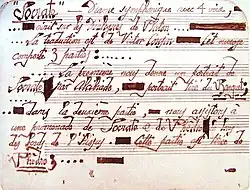 "Socrate" Drame symphonique avec 4 voix
sur des Dialogues de Platon
La traduction est de Victor Cousin Cet ouvrage
comporte 3 parties:
La première nous donne un portrait de
Socrate par Alcibiade portrait tiré du Banquet
dans la deuxième partie, nous assistons à
une promenade de Socrate & de Phèdre
les bords de l'Ilissus Cette partie est tirée de
Phèdre